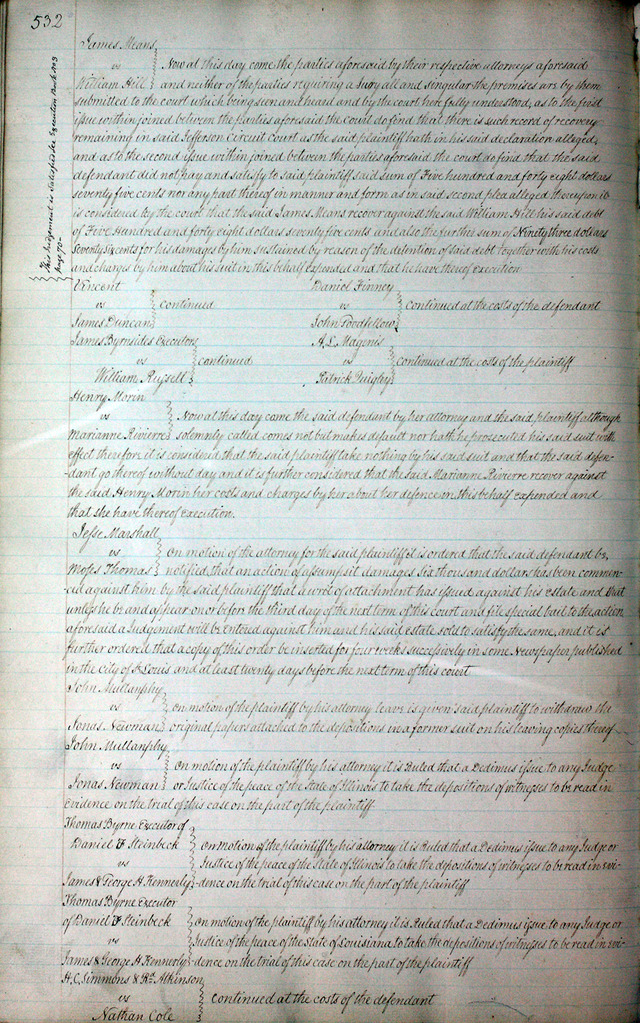 532
This Judgement is Satisfied see Execution Book No 3
page 70-
James Means
vs Now at this day come the parties aforesaid by their respective attorneys aforesaid
William Hill and neither of the parties requiring a Jury all and singular the premises are by them
submitted to the court which being seen and heard and by the court here fully understood, as to the first
issue within joined between the parties aforesaid the court do find that there is such record of recovery
remaining in said Jefferson Circuit court as the said plaintiff hath in his said declaration alleged,
and as to the second issue within joined between the parties aforesaid the court do find that the said
defendant did not pay and satisfy to said plaintiff said sum of Five hundred and forty eight dollars
seventy five cents nor any part thereof in manner and form as in said second plea alleged therefore it
is considered by the court that the said James Means recover against the said William Hill his said debt
of Five Hundred and forty eight dollars seventy five cents and also the further sum of Ninety three dollars
seventy six cents for his damages by him sustained by reason of the detention of said debt together with his costs
and charges by him about his suit in this behalf expended and that he have thereof execution
Vincent
vs continued
James Duncan
Daniel Finney
vs continued at the costs of the defendant
John Goodfellow
James Byrnsides Executors
vs continued
William Russell
A. L. Magenis
vs continued at the costs of the plaintiff
Patrick Quigley
Henry Morin
vs Now at this day come the said defendant by her attorney and the said plaintiff although
Marianne Rivierre solemnly called comes not but makes default nor hath he prosecuted his said suit with
effect therefore it is considered that the said plaintiff take nothing by his said suit and that the said defen-
-dant go thereof without day and it is further considered that the said Marianne Rivierre recover against
the said Henry Morin her costs and charges by her about her defence in this behalf expended and
that she have thereof execution.
Jesse Marshall
vs On motion of the attorney for the said plaintiff it is ordered that the said defendant be
Moses Thomas notified that an action of assumpsit damages Six thousand dollars has been commen-
ced against him by the said plaintiff that a writ of attachment has issued against his estate and that
unless he be and appear on or before the third day of the next term of this court and file special bail to the action
aforesaid a Judgement will be entered against him and his said estate sold to satisfy the same, and it is
further ordered that a copy of this order be inserted for four weeks successively in some Newspaper published
in the city of St Louis and at least twenty days before the next term of this court
John Mullanphy
vs on motion of the plaintiff by his attorney leave is given said plaintiff to withdraw the
Jonas Newman original papers attached to the depositions in a former suit on his leaving copies thereof
John Mullanphy
vs on motion of the plaintiff by his attorney it is Ruled that a Dedimus issue to any Judge
Jonas Newman or Justice of the peace of the State of Illinois to take the depositions of witnesses to be read in
Evidence on the trial of this case on the part of the plaintiff
Thomas Byrne Executor of
Daniel D Steinbeck on motion of the plaintiff by his attorney it is Ruled that a Dedimus issue to any Judge or
vs Justice of the peace of the State of Illinois to take the depositions of witnesses to be read in evi-
James & George H. Kennerly -dence on the trial of this case on the part of the plaintiff
Thomas Byrne Executor
of Daniel D Steinbeck on motion of the plaintiff by his attorney it is Ruled that a Dedimus issue to any Judge or
vs Justice of the peace of the State of Louisiana to take the depositions of witnesses to be read in evi-
James & George H. Kennerly -dence on the trial of this case on the part of the plaintiff
H. C. Simmons & Rd. Atkinson
vs continued at the costs of the defendant
Nathan Cole